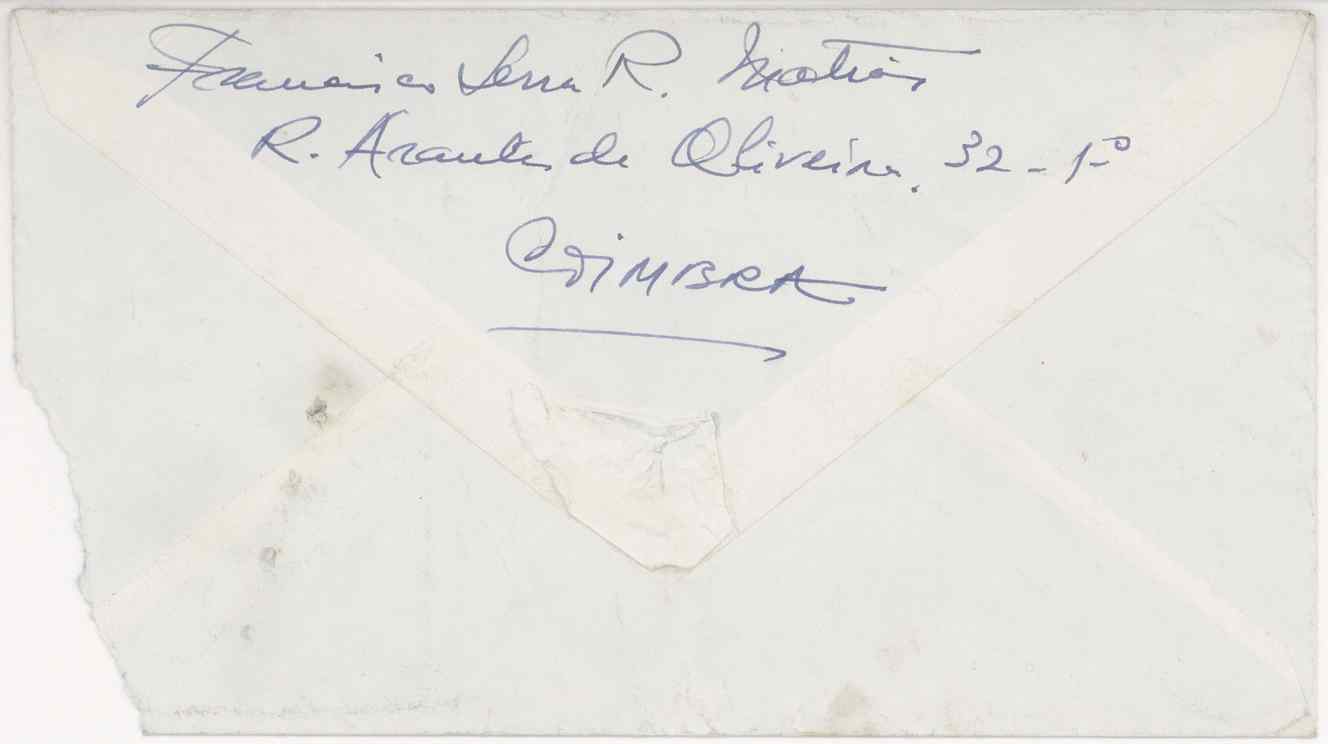 Francisco Serra R. Matias
R. Arantes de Oliveira, 32-1º
COIMBRA